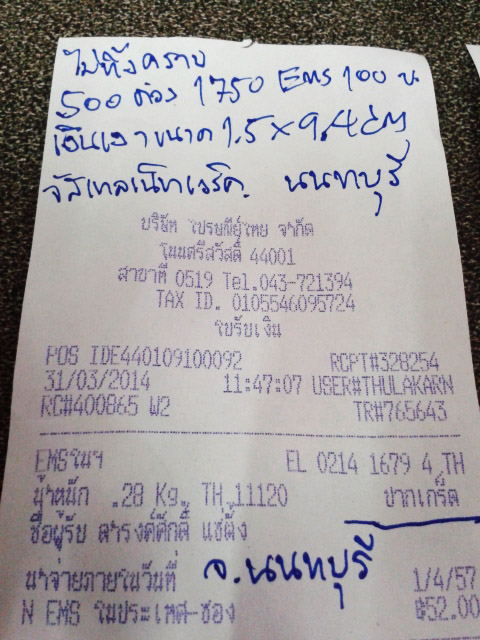 ไม่ทิ้งคราบ
500 ดวง 1750 EMS 100 บ.
เงินเงาขนาด 1.5 x 9.4 cm
จัสเทลเน็ทเวร์ค. นนทบุรี
บริษัท ไปรษณีย์ไทย จำกัด
โนนศรีสวัสดิ์ 44001
สาขาที่ 0519 Tel.043-721394
TAX ID. 0105546095724
ใบรับเงิน
POS IDE440109100092 RCPT#328254
31/03/2014 11:47:07 USER#THULAKARN
RC#400865 W2 TR#765643
EMSในฯ EL 0214 1679 4 TH
น้ำหนัก .28 Kg. TH 11120 ปากเกร็ด
ชื่อผู้รับ ดำรงค์ศักดิ์ แซ่ตั้ง
จ.นนทบุรี
นำจ่ายภายในวันที่ 1/4/57
N EMS ในประเทศ-ซอง ฿52.00